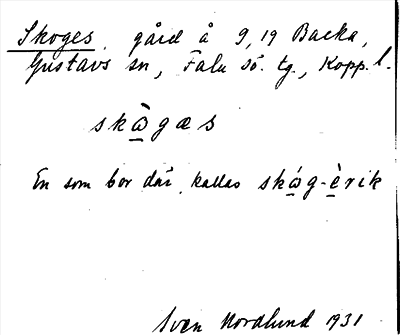 Skoges, gård å 9,19 Backa,
Gustavs sn, Falu sö. tg., Kopp. l.
skògæs
En som bor där, kallas skóg-èrik
Sven Nordlund 1931